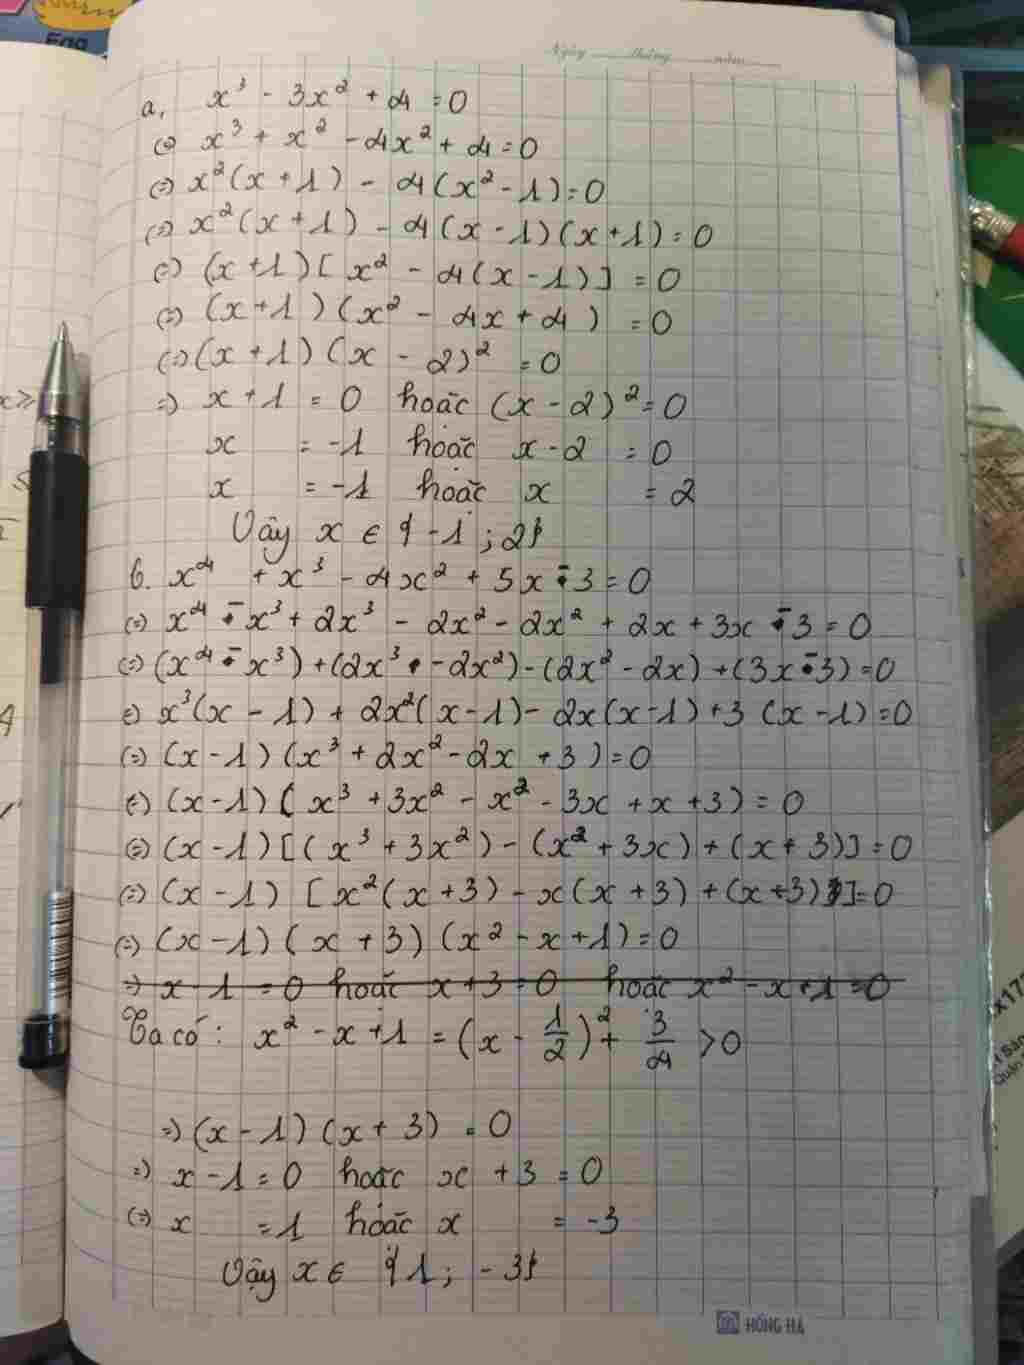 Egg
Ngày tháng năm
a, x³ - 3x² + 4 = 0
(=) x³ + x² - 4x² + 4 = 0
(=) x²(x + 1) - 4(x² - 1) = 0
(=) x²(x + 1) - 4(x - 1)(x + 1) = 0
(=) (x + 1)[x² - 4(x - 1)] = 0
(=) (x + 1)(x² - 4x + 4) = 0
(=) (x + 1)(x - 2)² = 0
=) x + 1 = 0 hoặc (x - 2)² = 0
x = -1 hoặc x - 2 = 0
x = -1 hoặc x = 2
Vậy x ∈ {-1; 2}
b. x⁴ + x³ - 4x² + 5x - 3 = 0
(=) x⁴ - x³ + 2x³ - 2x² - 2x² + 2x + 3x - 3 = 0
(=) (x⁴ - x³) + (2x³ - 2x²) - (2x² - 2x) + (3x - 3) = 0
(=) x³(x - 1) + 2x²(x - 1) - 2x(x - 1) + 3(x - 1) = 0
(=) (x - 1)(x³ + 2x² - 2x + 3) = 0
(=) (x - 1)(x³ + 3x² - x² - 3x + x + 3) = 0
(=) (x - 1)[(x³ + 3x²) - (x² + 3x) + (x + 3)] = 0
(=) (x - 1)[x²(x + 3) - x(x + 3) + (x + 3)] = 0
(=) (x - 1)(x + 3)(x² - x + 1) = 0
=) x - 1 = 0 hoặc x + 3 = 0 hoặc x² - x + 1 = 0
Ta có: x² - x + 1 = (x - 1/2)² + 3/4 > 0
=) (x - 1)(x + 3) = 0
=) x - 1 = 0 hoặc x + 3 = 0
(=) x = 1 hoặc x = -3
Vậy x ∈ {1; -3}
HỒNG HÀ